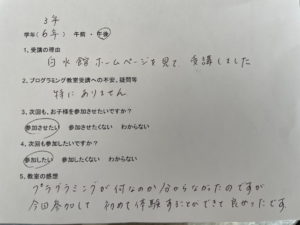 3年
学年(6年) 午前・午後
1、受講の理由
白水館ホームページを見て、受講しました
2、プログラミング教室受講への不安、疑問等
特にありません
3、次回も、お子様を参加させたいですか?
参加させたい 参加させたくない わからない
4、次回も参加したいですか?
参加したい 参加したくない わからない
5、教室の感想
プラグラミングが何なのか分からなかったのですが
今回参加して 初めて体験することができて良かったです